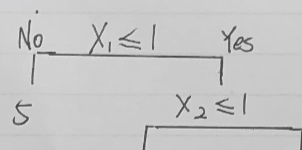 No X₁ ≤ 1 Yes
5 X₂ ≤ 1